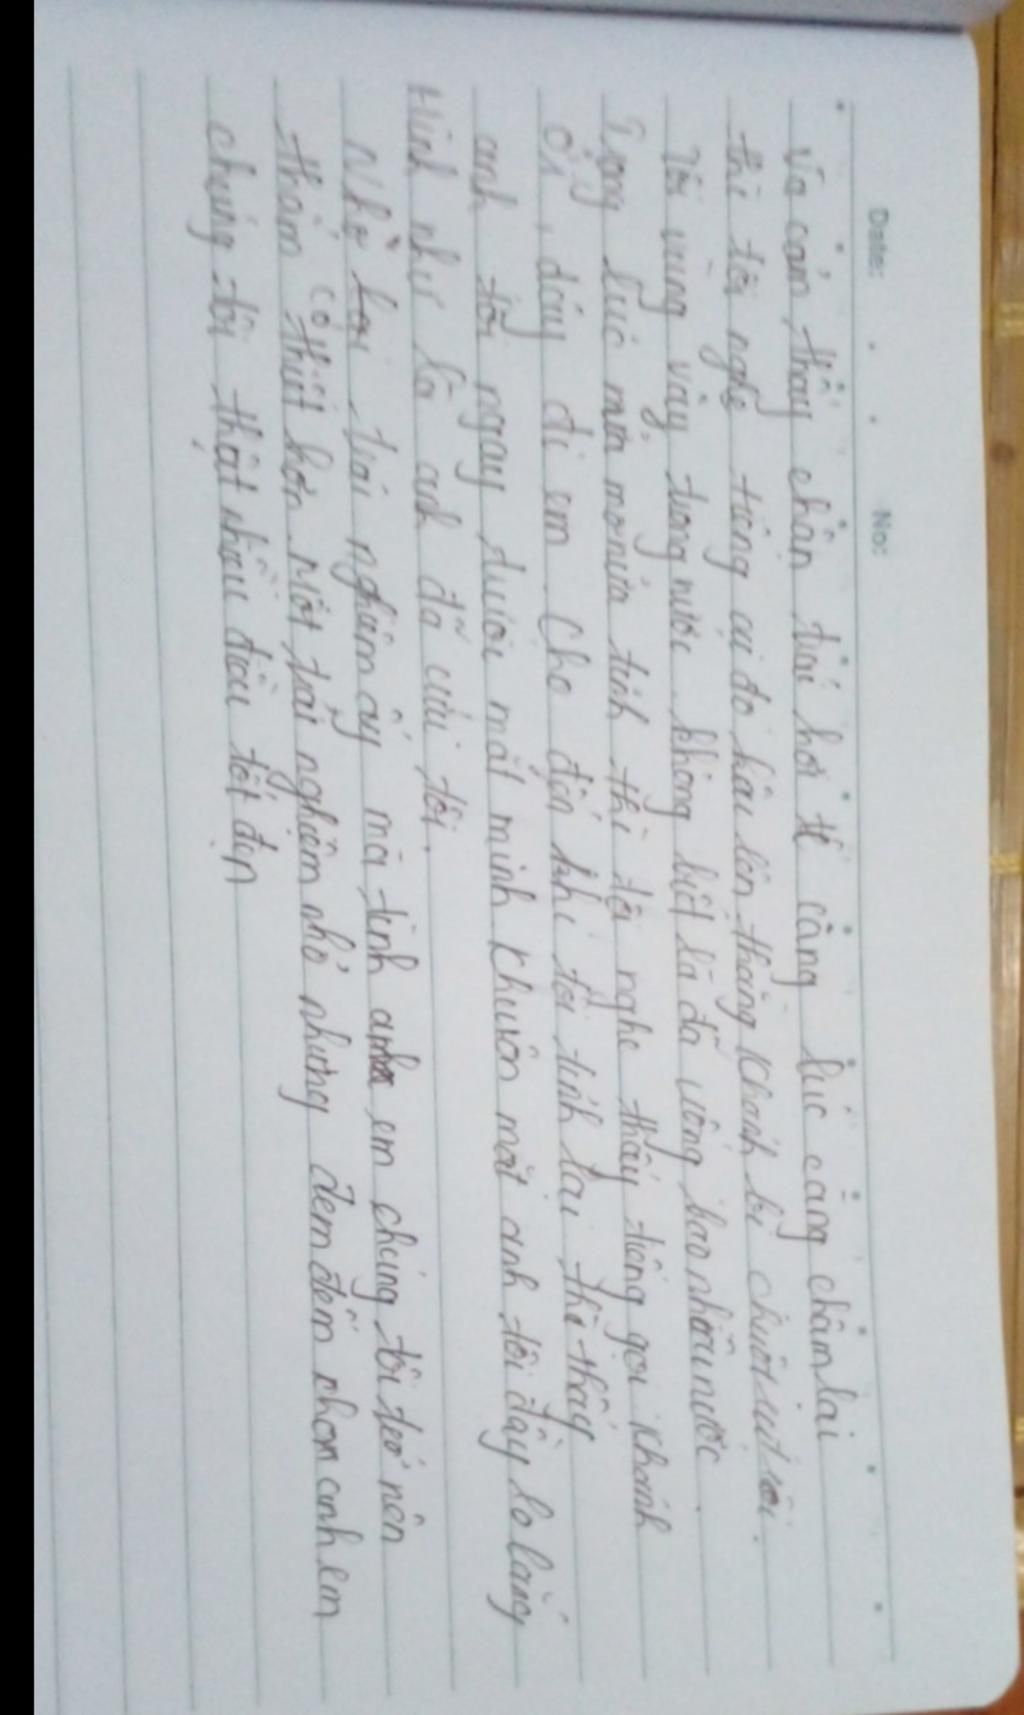 Date: No:
Và cảm thấy chân trái hơi tê càng lúc càng chậm lại
thì tôi nghe tiếng ai đó kêu lên thằng Khánh bị chuột rút rồi.
Tôi vùng vẫy trong nước không biết là đã uống bao nhiêu nước.
Trong lúc nửa mơ nửa tỉnh thì tôi nghe thấy tiếng gọi Khánh
ơi, dậy đi em. Cho đến khi tôi tỉnh lại thì thấy
anh tôi ngay trước mắt mình khuôn mặt anh tôi đầy lo lắng
Hình như là anh đã cứu tôi.
Nhờ trải nghiệm ấy mà tình anh em chúng tôi trở nên
thắm thiết hơn. Một trải nghiệm nhỏ nhưng đem đến cho anh em
chúng tôi thật nhiều điều tốt đẹp